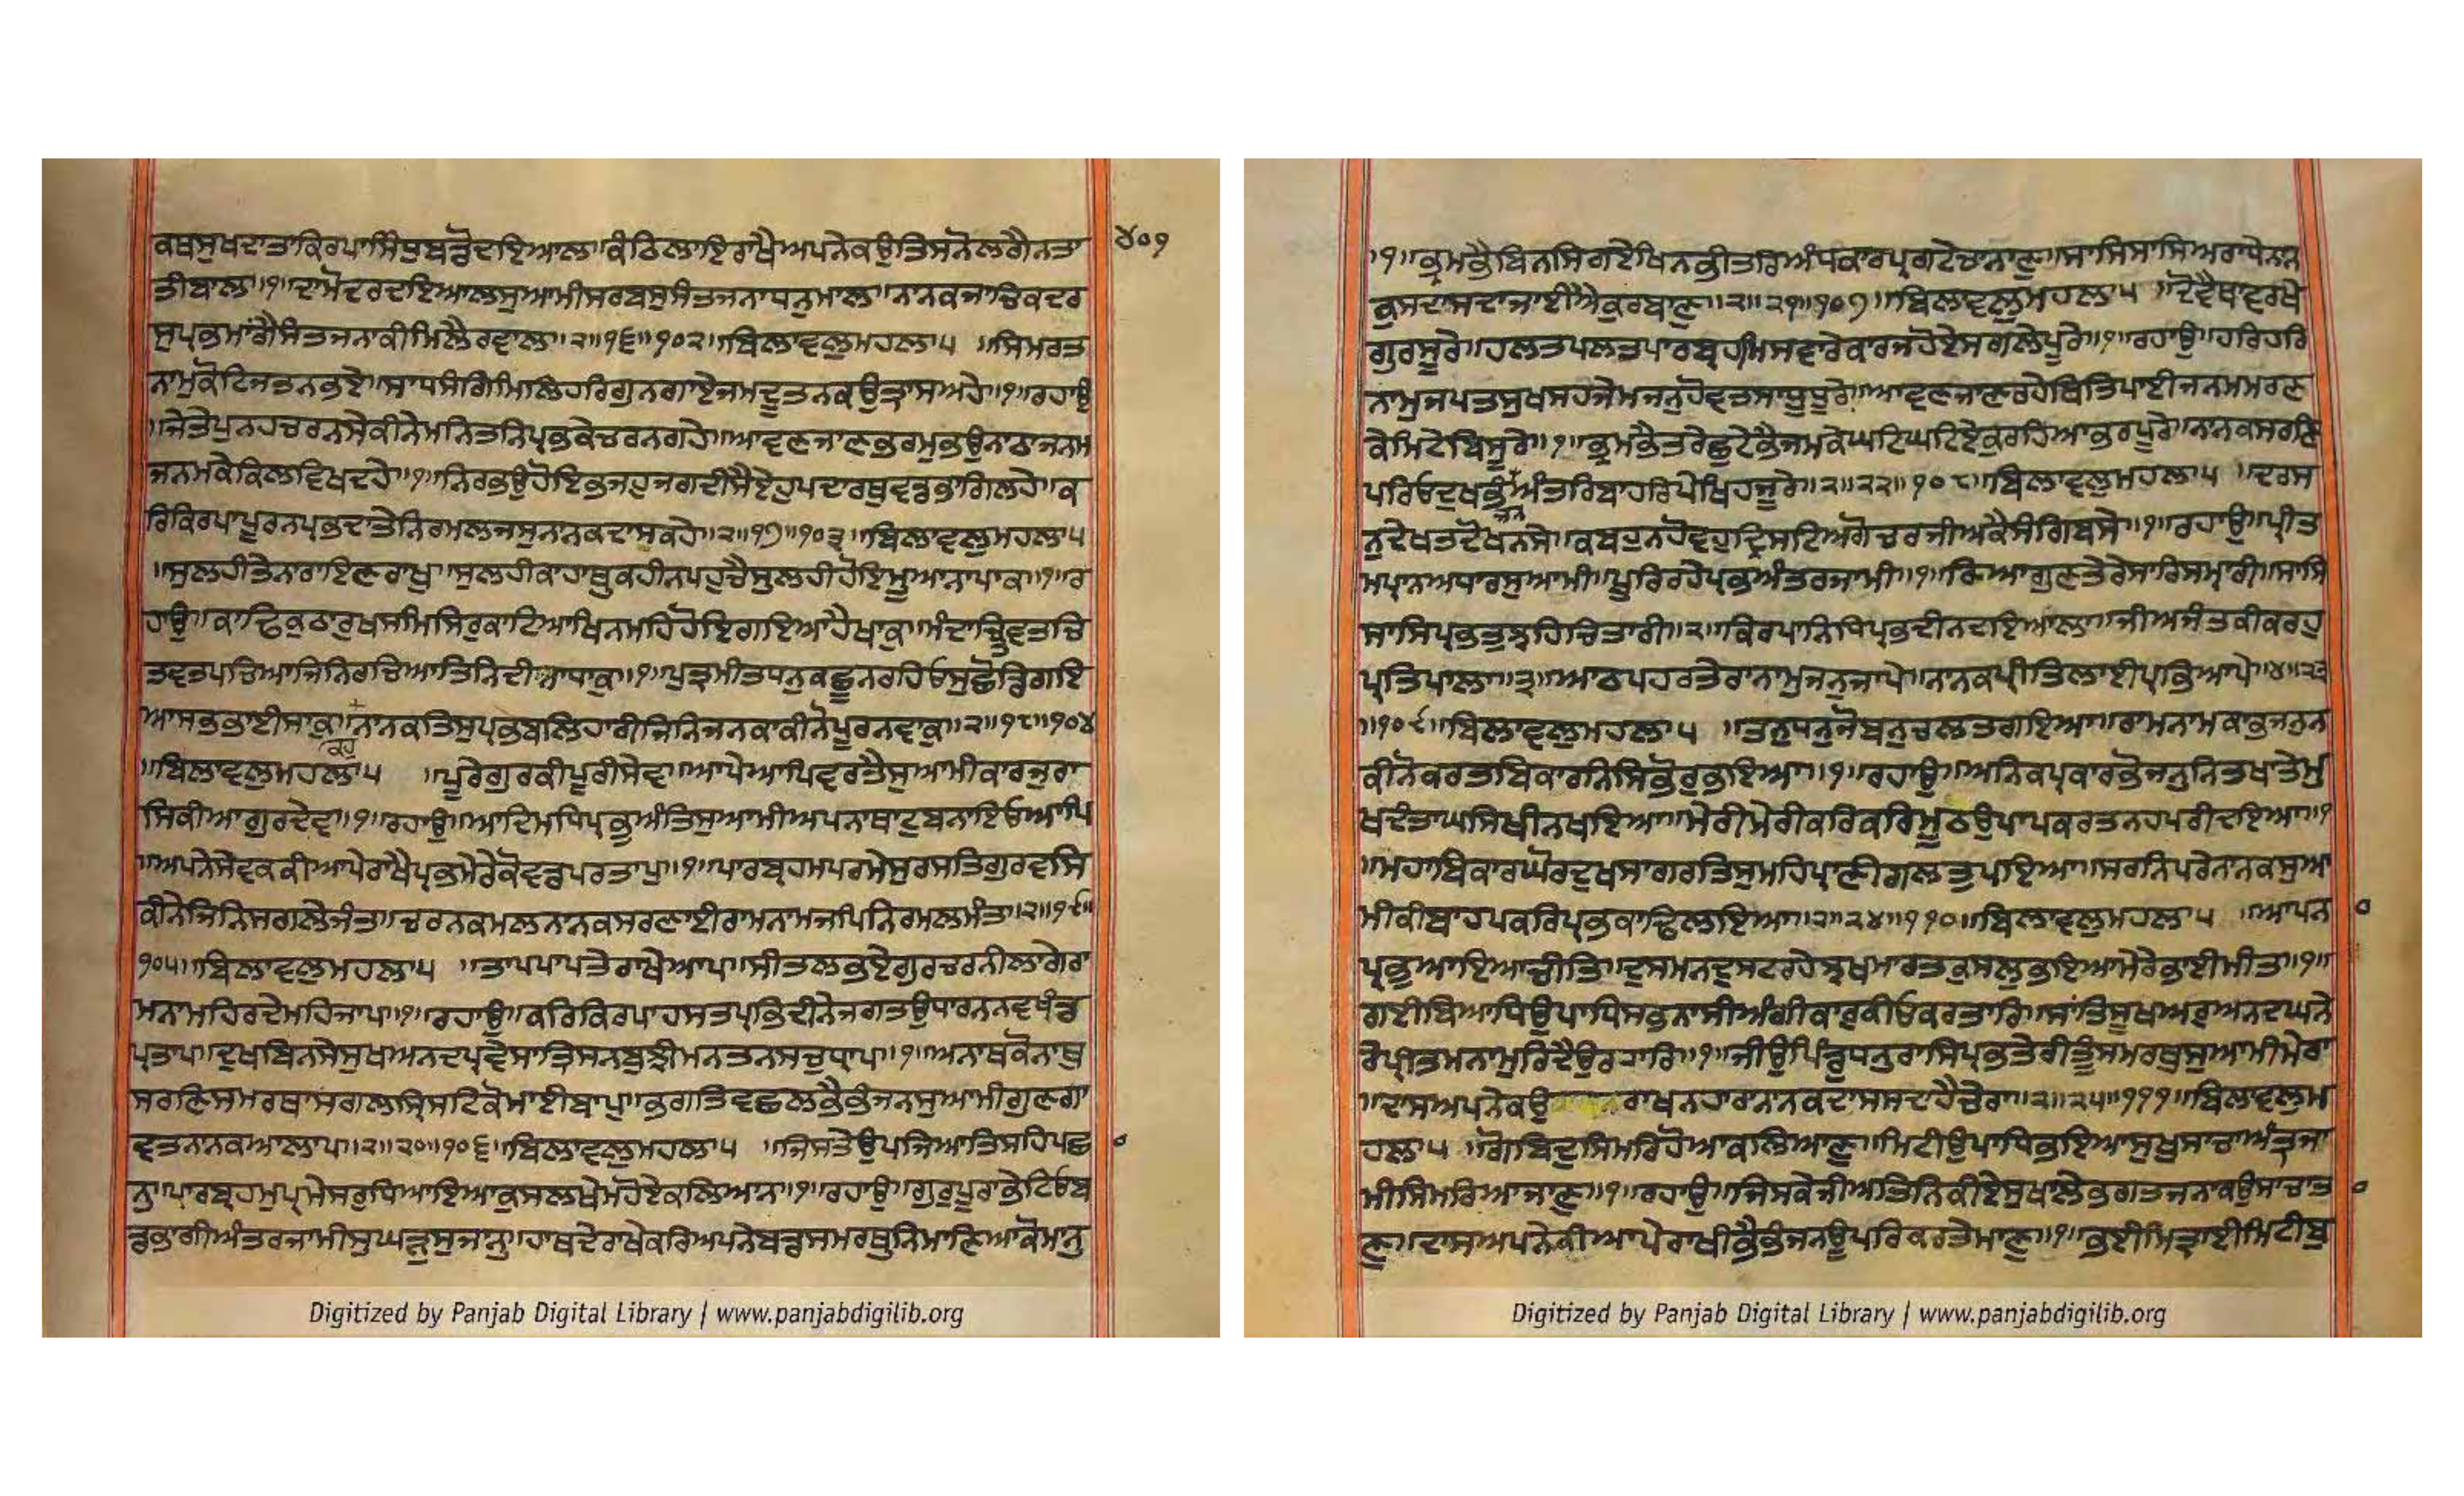 ਕਥਸੁਖਦਾਤਾਕਿਰਪਾਸਿੰਧੁਬਡੋਦਇਆਲਾ॥ਕੰਠਿਲਾਇਰਾਖੈਅਪਨੇਕਉਤਿਸਨੋਲਗੈਨਤਾ
ਤੀਬਾਲਾ॥੧॥ਦਾਮੋਦਰਦਇਆਲਸੁਆਮੀਸਰਬਸੁਸੰਤਜਨਾਧਨੁਮਾਲਾ॥ਨਾਨਕਜਾਚਿਕਦਰ
ਸੁਪ੍ਰਭਮਾਂਗੈਸੰਤਜਨਾਕੀਮਿਲੈਰਵਾਲਾ॥੨॥੧੬॥੧੦੨॥ਬਿਲਾਵਲੁਮਹਲਾ੫ ॥ਸਿਮਰਤ
ਨਾਮੁਕੋਟਿਜਤਨਭਏ॥ਸਾਧਸੰਗਿਮਿਲਿਹਰਿਗੁਨਗਾਏਜਮਦੂਤਨਕਉਤ੍ਰਾਸਅਹੇ॥੧॥ਰਹਾਉ
॥ਜੇਤੇਪੁਨਹਚਰਨਸੇਕੀਨੇਮਨਿਤਨਿਪ੍ਰਭਕੇਚਰਨਗਹੇ॥ਆਵਣਜਾਣਭਰਮੁਭਉਨਾਠਾਜਨਮ
ਜਨਮਕੇਕਿਲਵਿਖਦਹੇ॥੧॥ਨਿਰਭਉਹੋਇਭਜਹੁਜਗਦੀਸੈਏਹੁਪਦਾਰਥੁਵਡਭਾਗਿਲਹੇ॥ਕ
ਰਿਕਿਰਪਾਪੂਰਨਪ੍ਰਭਦਾਤੇਨਿਰਮਲਜਸੁਨਾਨਕਦਾਸਕਹੇ॥੨॥੧੭॥੧੦੩॥ਬਿਲਾਵਲੁਮਹਲਾ੫
॥ਸੁਲਹੀਤੇਨਾਰਾਇਣਰਾਖੁ॥ਸੁਲਹੀਕਾਹਾਥੁਕਹੀਨਪਹੁਚੈਸੁਲਹੀਹੋਇਮੂਆਨਾਪਾਕ॥੧॥ਰ
ਹਾਉ॥ਕਾਢਿਕੁਠਾਰੁਖਸਮਿਸਿਰੁਕਾਟਿਆਖਿਨਮਹਿਹੋਇਗਇਆਹੈਖਾਕੁ॥ਮੰਦਾਚਿਤਵਤਚਿ
ਤਵਤਪਚਿਆਜਿਨਿਰਚਿਆਤਿਨਿਦੀਨਾਧਾਕੁ॥੧॥ਪੁਤ੍ਰਮੀਤਧਨੁਕਛੂਨਰਹਿਓਸੁਛੋਡਿਗਇ
ਆਸਭਭਾਈਸਾਕੁ॥ਨਾਨਕਤਿਸੁਪ੍ਰਭਬਲਿਹਾਰੀਜਿਨਿਜਨਕਾਕੀਨੋਪੂਰਨਵਾਕੁ॥੨॥੧੮॥੧੦੪
॥ਬਿਲਾਵਲੁਮਹਲਾ੫ ॥ਪੂਰੇਗੁਰਕੀਪੂਰੀਸੇਵਾ॥ਆਪੇਆਪਿਵਰਤੈਸੁਆਮੀਕਾਰਜੁਰਾ
ਸਿਕੀਆਗੁਰਦੇਵਾ॥੧॥ਰਹਾਉ॥ਆਦਿਮਧਿਪ੍ਰਭੁਅੰਤਿਸੁਆਮੀਅਪਨਾਥਾਟੁਬਨਾਇਓਆਪਿ
॥ਅਪਨੇਸੇਵਕਕੀਆਪੇਰਾਖੈਪ੍ਰਭਮੇਰੇਕੋਵਡਪਰਤਾਪੁ॥੧॥ਪਾਰਬ੍ਰਹਮਪਰਮੇਸੁਰਸਤਿਗੁਰਵਸਿ
ਕੀਨੇਜਿਨਿਸਗਲੇਜੰਤ॥ਚਰਨਕਮਲਨਾਨਕਸਰਣਾਈਰਾਮਨਾਮਜਪਿਨਿਰਮਲਮੰਤ॥੨॥੧੯॥
੧੦੫॥ਬਿਲਾਵਲੁਮਹਲਾ੫ ॥ਤਾਪਪਾਪਤੇਰਾਖੇਆਪ॥ਸੀਤਲਭਏਗੁਰਚਰਨੀਲਾਗੇਰਾ
ਮਨਾਮਹਿਰਦੇਮਹਿਜਾਪ॥੧॥ਰਹਾਉ॥ਕਰਿਕਿਰਪਾਹਸਤਪ੍ਰਭਿਦੀਨੇਜਗਤਉਧਾਰਨਨਵਖੰਡ
ਪ੍ਰਤਾਪ॥ਦੁਖਬਿਨਸੇਸੁਖਅਨਦਪ੍ਰਵੇਸਾਤ੍ਰਿਸਨਬੁਝੀਮਨਤਨਸਚੁਧ੍ਰਾਪ॥੧॥ਅਨਾਥਕੋਨਾਥੁ
ਸਰਣਿਸਮਰਥਾਸਗਲਸ੍ਰਿਸਟਿਕੋਮਾਈਬਾਪੁ॥ਭਗਤਿਵਛਲਭੈਭੰਜਨਸੁਆਮੀਗੁਣਗਾ
ਵਤਨਾਨਕਆਲਾਪ॥੨॥੨੦॥੧੦੬॥ਬਿਲਾਵਲੁਮਹਲਾ੫ ॥ਜਿਸਤੇਉਪਜਿਆਤਿਸਹਿਪਛਾ
ਨੁ॥ਪਾਰਬ੍ਰਹਮੁਪ੍ਰਮੇਸਰੁਧਿਆਇਆਕੁਸਲਖੇਮਹੋਏਕਲਿਆਨ॥੧॥ਰਹਾਉ॥ਗੁਰੁਪੂਰਾਭੇਟਿਓਬ
ਡਭਾਗੀਅੰਤਰਜਾਮੀਸੁਘੜੁਸੁਜਾਨੁ॥ਹਾਥਦੇਰਾਖੇਕਰਿਅਪਨੇਬਡਸਮਰਥੁਨਿਮਾਣਿਆਕੋਮਾਨੁ
੪੦੧
॥੧॥ਭ੍ਰਮਭੈਬਿਨਸਿਗਏਖਿਨਭੀਤਰਿਅੰਧਕਾਰਪ੍ਰਗਟੇਚਾਨਾਣੁ॥ਸਾਸਿਸਾਸਿਅਰਾਧੈਨਾਨ
ਕੁਸਦਾਸਦਾਜਾਈਐਕੁਰਬਾਣੁ॥੨॥੨੧॥੧੦੭॥ਬਿਲਾਵਲੁਮਹਲਾ੫ ॥ਦੋਵੈਥਾਵਰਖੇ
ਗੁਰਸੂਰੇ॥ਹਲਤਪਲਤਪਾਰਬ੍ਰਹਮਿਸਵਾਰੇਕਾਰਜਹੋਏਸਗਲੇਪੂਰੇ॥੧॥ਰਹਾਉ॥ਹਰਿਹਰਿ
ਨਾਮੁਜਪਤਸੁਖਸਹਜੇਮਜਨੁਹੋਵਤਸਾਧੂਧੂਰੇ॥ਆਵਣਜਾਣਰਹੇਥਿਤਿਪਾਈਜਨਮਮਰਣ
ਕੇਮਿਟੇਬਿਸੂਰੇ॥੧॥ਭ੍ਰਮਭੈਤਰੇਛੁਟੇਭੈਜਮਕੇਘਟਿਘਟਿਏਕੁਰਹਿਆਭਰਪੂਰੇ॥ਨਾਨਕਸਰਣਿ
ਪਰਿਓਦੁਖਭੰਜਨਅੰਤਰਿਬਾਹਰਿਪੇਖਿਹਜੂਰੇ॥੨॥੨੨॥੧੦੮॥ਬਿਲਾਵਲੁਮਹਲਾ੫ ॥ਦਰਸ
ਨੁਦੇਖਤਦੋਖਨਸੇ॥ਕਬਹੁਨਹੋਵਹੁਦ੍ਰਿਸਟਿਅਗੋਚਰਜੀਅਕੈਸੰਗਿਬਸੇ॥੧॥ਰਹਾਉ॥ਪ੍ਰੀਤ
ਮਪ੍ਰਾਨਅਧਾਰਸੁਆਮੀ॥ਪੂਰਿਰਹੇਪ੍ਰਭਅੰਤਰਜਾਮੀ॥੧॥ਕਿਆਗੁਣਤੇਰੇਸਾਰਿਸਮ੍ਹਾਰੀ॥ਸਾਸਿ
ਸਾਸਿਪ੍ਰਭਤੁਝਹਿਚਿਤਾਰੀ॥੨॥ਕਿਰਪਾਨਿਧਿਪ੍ਰਭਦੀਨਦਇਆਲਾ॥ਜੀਅਜੰਤਕੀਕਰਹੁ
ਪ੍ਰਤਿਪਾਲਾ॥੩॥ਆਠਪਹਰਤੇਰਾਨਾਮੁਜਨੁਜਾਪੇ॥ਨਾਨਕਪ੍ਰੀਤਿਲਾਈਪ੍ਰਭਿਆਪੇ॥੪॥੨੩
॥੧੦੯॥ਬਿਲਾਵਲੁਮਹਲਾ੫ ॥ਤਨੁਧਨੁਜੋਬਨੁਚਲਤਗਇਆ॥ਰਾਮਨਾਮਕਾਭਜਨੁਨ
ਕੀਨੋਕਰਤਬਿਕਾਰਨਿਸਿਭੋਰੁਭਇਆ॥੧॥ਰਹਾਉ॥ਅਨਿਕਪ੍ਰਕਾਰਭੋਜਨੁਨਿਤਖਾਤੇਮੁ
ਖਦੰਤਾਘਸਿਖੀਨਖਇਆ॥ਮੇਰੀਮੇਰੀਕਰਿਕਰਿਮੂਠਉਪਾਪਕਰਤਨਹਪਰੀਦਇਆ॥੧
॥ਮਹਾਬਿਕਾਰਘੋਰਦੁਖਸਾਗਰਤਿਸੁਮਹਿਪ੍ਰਾਣੀਗਲਤੁਪਇਆ॥ਸਰਨਿਪਰੇਨਾਨਕਸੁਆ
ਮੀਕੀਬਾਹਪਕਰਿਪ੍ਰਭਕਾਢਿਲਇਆ॥੨॥੨੪॥੧੧੦॥ਬਿਲਾਵਲੁਮਹਲਾ੫ ॥ਆਪਨਾ
ਪ੍ਰਭੁਆਇਆਚੀਤਿ॥ਦੁਸਮਨਦੁਸਟਰਹੇਝਖਮਾਰਤਕੁਸਲੁਭਇਆਮੇਰੇਭਾਈਮੀਤ॥੧॥
ਗਈਬਿਆਧਿਉਪਾਧਿਸਭਨਾਸੀਅੰਗੀਕਾਰੁਕੀਓਕਰਤਾਰਿ॥ਸਾਂਤਿਸੂਖਅਰੁਅਨਦਘਨੇ
ਰੇਪ੍ਰੀਤਮਨਾਮੁਰਿਦੈਉਰਹਾਰਿ॥੧॥ਜੀਉਪਿੰਡੁਧਨੁਰਾਸਿਪ੍ਰਭਤੇਰੀਤੂੰਸਮਰਥੁਸੁਆਮੀਮੇਰਾ
॥ਦਾਸਅਪਨੇਕਉ ਰਾਖਨਹਾਰਾਨਾਨਕਦਾਸਸਦਾਹੈਚੇਰਾ॥੨॥੨੫॥੧੧੧॥ਬਿਲਾਵਲੁਮ
ਹਲਾ੫ ॥ਗੋਬਿਦੁਸਿਮਰਿਹੋਆਕਲਿਆਣੁ॥ਮਿਟੀਉਪਾਧਿਭਇਆਸੁਖੁਸਾਚਾਅੰਤ੍ਰਜਾ
ਮੀਸਿਮਰਿਆਜਾਣੁ॥੧॥ਰਹਾਉ॥ਜਿਸਕੇਜੀਅਤਿਨਿਕੀਏਸੁਖਾਲੇਭਗਤਜਨਾਕਉਸਾਚਾਤਾ
ਣੁ॥ਦਾਸਅਪਨੇਕੀਆਪੇਰਾਖੀਭੈਭੰਜਨਊਪਰਿਕਰਤੇਮਾਣੁ॥੧॥ਭਈਮਿਤ੍ਰਾਈਮਿਟੀਬੁ
Digitized by Panjab Digital Library | www.panjabdigilib.org
Digitized by Panjab Digital Library | www.panjabdigilib.org